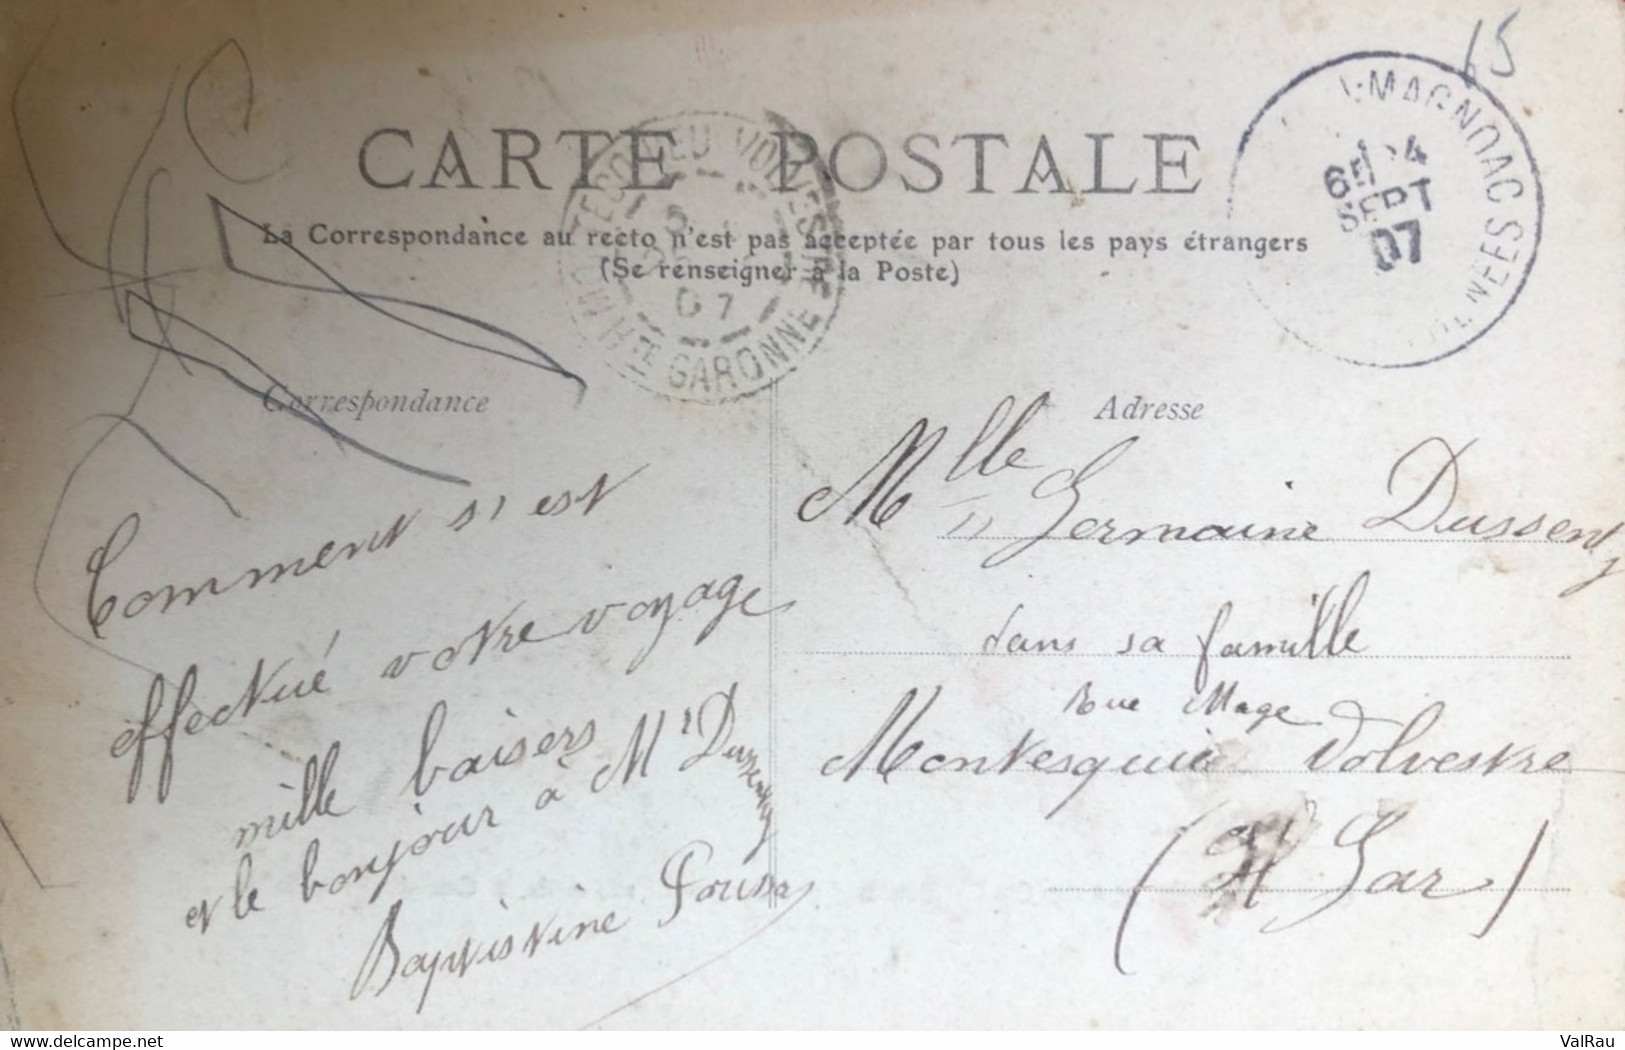 15
MAGNOAC
6E 24
SEPT
07
CARTE POSTALE
La Correspondance au recto n'est pas acceptée par tous les pays étrangers
(Se renseigner à la Poste)
07
Hte GARONNE
Correspondance
Comment s'est
effectué votre voyage
mille baisers
et le bonjour à Mr Dussenty
Baptistine
Adresse
Mlle Germaine Dussenty
dans sa famille
rue Mage
Montesquieu Volvestre
(Hte Gar)
delcampe.net
ValRau